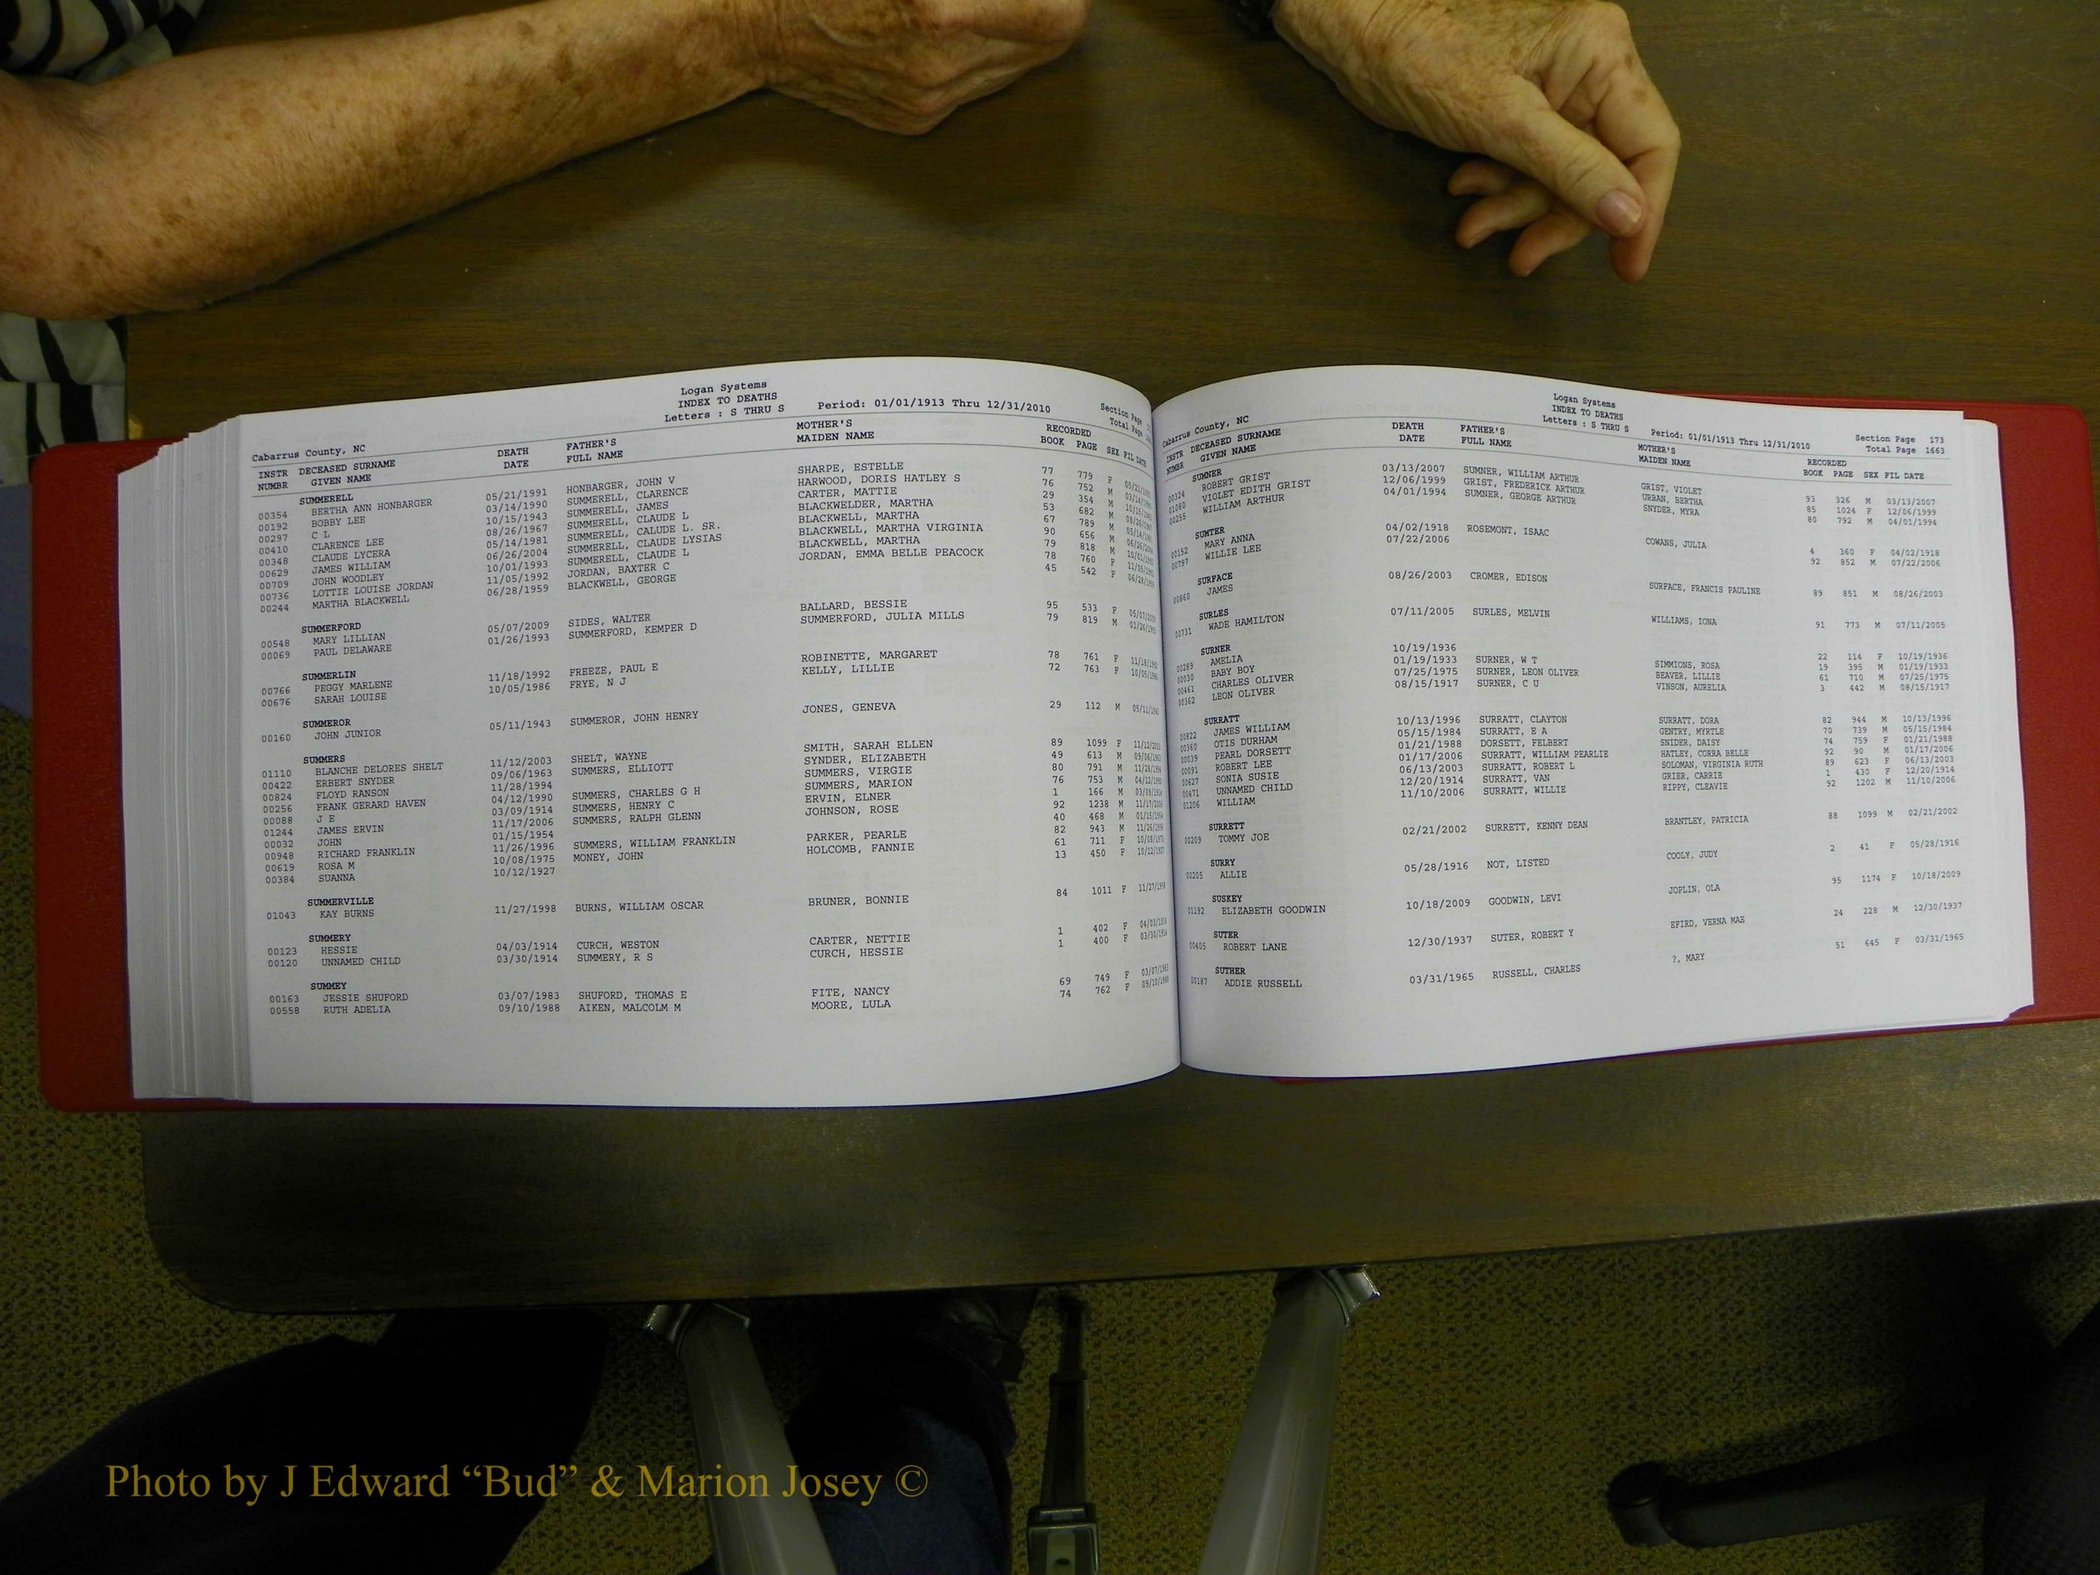 Logan Systems
INDEX TO DEATHS
Letters : S THRU S Period: 01/01/1913 Thru 12/31/2010 Section Page
Cabarrus County, NC Total Page
INSTR DECEASED SURNAME DEATH FATHER'S MOTHER'S RECORDED
NUMBR GIVEN NAME DATE FULL NAME MAIDEN NAME BOOK PAGE SEX FIL DATE
SUMMERELL
00354 BERTHA ANN HONBARGER 05/21/1991 HONBARGER, JOHN V SHARPE, ESTELLE 77 779 F
00192 BOBBY LEE 03/14/1990 SUMMERELL, CLARENCE HARWOOD, DORIS HATLEY S 76 752 M
00297 C L 10/15/1943 SUMMERELL, JAMES CARTER, MATTIE 29 354 M
00410 CLARENCE LEE 08/26/1967 SUMMERELL, CLAUDE L BLACKWELDER, MARTHA 53 682 M
00348 CLAUDE LYCERA 05/14/1981 SUMMERELL, CALUDE L. SR. BLACKWELL, MARTHA 67 789 M
00629 JAMES WILLIAM 06/26/2004 SUMMERELL, CLAUDE LYSIAS BLACKWELL, MARTHA VIRGINIA 90 656 M
00709 JOHN WOODLEY 10/01/1993 SUMMERELL, CLAUDE L BLACKWELL, MARTHA 79 818 M
00736 LOTTIE LOUISE JORDAN 11/05/1992 JORDAN, BAXTER C JORDAN, EMMA BELLE PEACOCK 78 760 F
00244 MARTHA BLACKWELL 06/28/1959 BLACKWELL, GEORGE 45 542 F
SUMMERFORD
00548 MARY LILLIAN 05/07/2009 SIDES, WALTER BALLARD, BESSIE 95 533 F 05/07/2009
00069 PAUL DELAWARE 01/26/1993 SUMMERFORD, KEMPER D SUMMERFORD, JULIA MILLS 79 819 M 01/26/1993
SUMMERLIN
00766 PEGGY MARLENE 11/18/1992 FREEZE, PAUL E ROBINETTE, MARGARET 78 761 F 11/18/1992
00676 SARAH LOUISE 10/05/1986 FRYE, N J KELLY, LILLIE 72 763 F 10/05/1986
SUMMEROR
00160 JOHN JUNIOR 05/11/1943 SUMMEROR, JOHN HENRY JONES, GENEVA 29 112 M 05/11/1943
SUMMERS
01110 BLANCHE DELORES SHELT 11/12/2003 SHELT, WAYNE SMITH, SARAH ELLEN 89 1099 F 11/12/2003
00422 ERBERT SNYDER 09/06/1963 SUMMERS, ELLIOTT SYNDER, ELIZABETH 49 613 M 09/06/1963
00824 FLOYD RANSON 11/28/1994 SUMMERS, VIRGIE 80 791 M 11/28/1994
00256 FRANK GERARD HAVEN 04/12/1990 SUMMERS, CHARLES G H SUMMERS, MARION 76 753 M 04/12/1990
00088 J E 03/09/1914 SUMMERS, HENRY C ERVIN, ELNER 1 166 M 03/09/1914
01244 JAMES ERVIN 11/17/2006 SUMMERS, RALPH GLENN JOHNSON, ROSE 92 1238 M 11/17/2006
00032 JOHN 01/15/1954 40 468 M 01/15/1954
00948 RICHARD FRANKLIN 11/26/1996 SUMMERS, WILLIAM FRANKLIN PARKER, PEARLE 82 943 M 11/26/1996
00619 ROSA M 10/08/1975 MONEY, JOHN HOLCOMB, FANNIE 61 711 F 10/08/1975
00384 SUANNA 10/12/1927 13 450 F 10/12/1927
SUMMERVILLE
01043 KAY BURNS 11/27/1998 BURNS, WILLIAM OSCAR BRUNER, BONNIE 84 1011 F 11/27/1998
SUMMERY
00123 HESSIE 04/03/1914 CURCH, WESTON CARTER, NETTIE 1 402 F 04/03/1914
00120 UNNAMED CHILD 03/30/1914 SUMMERY, R S CURCH, HESSIE 1 400 F 03/30/1914
SUMMEY
00163 JESSIE SHUFORD 03/07/1983 SHUFORD, THOMAS E FITE, NANCY 69 749 F 03/07/1983
00558 RUTH ADELIA 09/10/1988 AIKEN, MALCOLM M MOORE, LULA 74 762 F 09/10/1988
Logan Systems
INDEX TO DEATHS
Letters : S THRU S Period: 01/01/1913 Thru 12/31/2010 Section Page 173
Cabarrus County, NC Total Page 1663
INSTR DECEASED SURNAME DEATH FATHER'S MOTHER'S RECORDED
NUMBR GIVEN NAME DATE FULL NAME MAIDEN NAME BOOK PAGE SEX FIL DATE
SUMNER
00324 ROBERT GRIST 03/13/2007 SUMNER, WILLIAM ARTHUR GRIST, VIOLET 93 326 M 03/13/2007
01080 VIOLET EDITH GRIST 12/06/1999 GRIST, FREDERICK ARTHUR URBAN, BERTHA 85 1024 F 12/06/1999
00255 WILLIAM ARTHUR 04/01/1994 SUMNER, GEORGE ARTHUR SNYDER, MYRA 80 792 M 04/01/1994
SUMTER
00152 MARY ANNA 04/02/1918 ROSEMONT, ISAAC COWANS, JULIA 4 360 F 04/02/1918
00797 WILLIE LEE 07/22/2006 92 852 M 07/22/2006
SURFACE
00860 JAMES 08/26/2003 CROMER, EDISON SURFACE, FRANCIS PAULINE 89 851 M 08/26/2003
SURLES
00731 WADE HAMILTON 07/11/2005 SURLES, MELVIN WILLIAMS, IONA 91 773 M 07/11/2005
SURNER
00289 AMELIA 10/19/1936 22 114 F 10/19/1936
00030 BABY BOY 01/19/1933 SURNER, W T SIMMIONS, ROSA 19 395 M 01/19/1933
00461 CHARLES OLIVER 07/25/1975 SURNER, LEON OLIVER BEAVER, LILLIE 61 710 M 07/25/1975
00362 LEON OLIVER 08/15/1917 SURNER, C U VINSON, AURELIA 3 442 M 08/15/1917
SURRATT
00822 JAMES WILLIAM 10/13/1996 SURRATT, CLAYTON SURRATT, DORA 82 944 M 10/13/1996
00360 OTIS DURHAM 05/15/1984 SURRATT, E A GENTRY, MYRTLE 70 739 M 05/15/1984
00039 PEARL DORSETT 01/21/1988 DORSETT, FELBERT SNIDER, DAISY 74 759 F 01/21/1988
00091 ROBERT LEE 01/17/2006 SURRATT, WILLIAM PEARLIE HATLEY, CORRA BELLE 92 90 M 01/17/2006
00627 SONIA SUSIE 06/13/2003 SURRATT, ROBERT L SOLOMAN, VIRGINIA RUTH 89 623 F 06/13/2003
00471 UNNAMED CHILD 12/20/1914 SURRATT, VAN GRIER, CARRIE 1 430 F 12/20/1914
01206 WILLIAM 11/10/2006 SURRATT, WILLIE RIPPY, CLEAVIE 92 1202 M 11/10/2006
SURRETT
00209 TOMMY JOE 02/21/2002 SURRETT, KENNY DEAN BRANTLEY, PATRICIA 88 1099 M 02/21/2002
SURRY
00205 ALLIE 05/28/1916 NOT, LISTED COOLY, JUDY 2 41 F 05/28/1916
SUSKEY
01192 ELIZABETH GOODWIN 10/18/2009 GOODWIN, LEVI JOPLIN, OLA 95 1174 F 10/18/2009
SUTER
00405 ROBERT LANE 12/30/1937 SUTER, ROBERT Y EFIRD, VERNA MAE 24 228 M 12/30/1937
SUTHER
00187 ADDIE RUSSELL 03/31/1965 RUSSELL, CHARLES ?, MARY 51 645 F 03/31/1965
Photo by J Edward “Bud” & Marion Josey ©